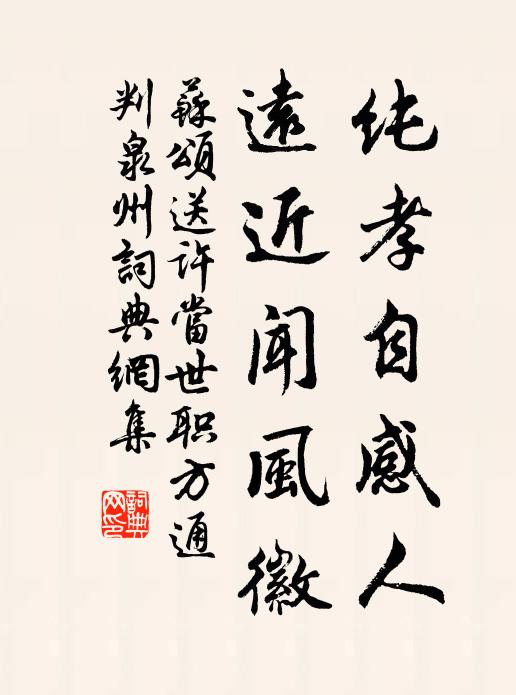 纯孝自感人
遠近聞風徽
蘇頌送许當世职方通
判泉州詞典網集
詞典
网印